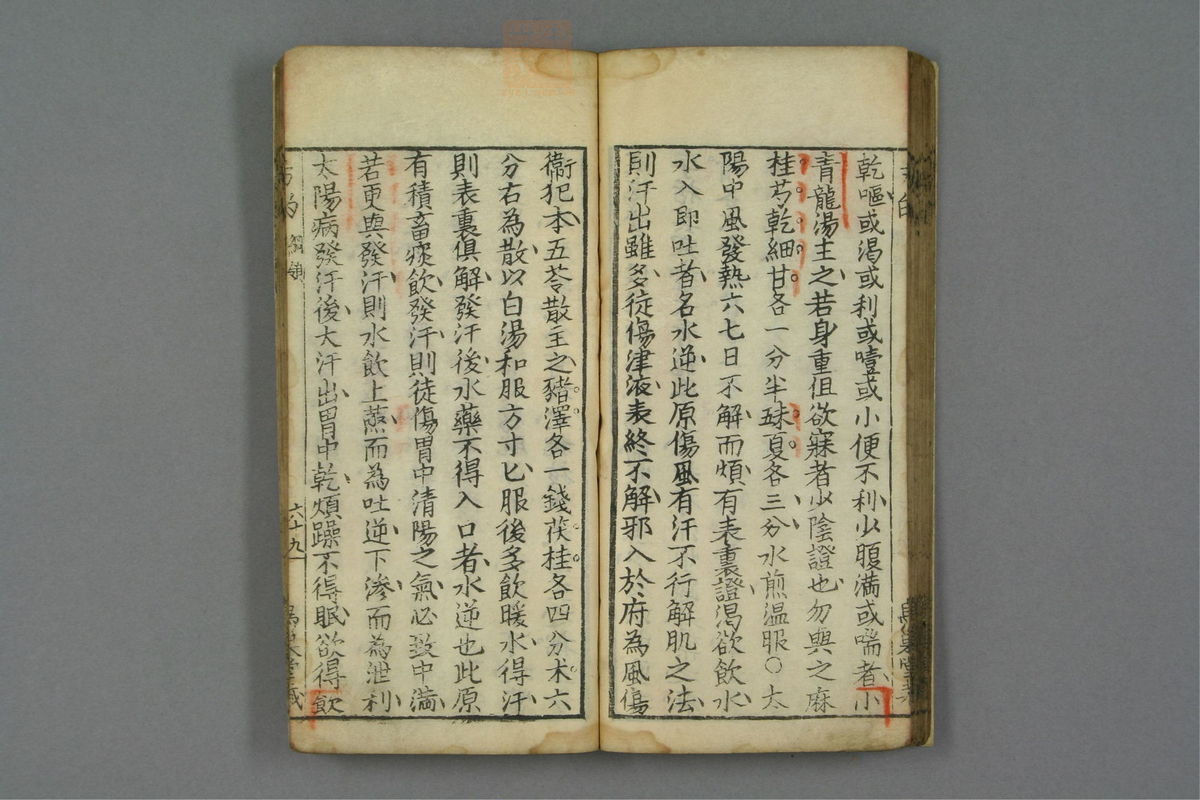 乾嘔或渴或利或噎或小便不利少腹滿或喘者小
青龍湯主之若身重但欲寐者少陰證也勿與之麻
桂芍乾細甘各一分半味夏各三分水煎温服○太
陽中風發熱六七日不解而煩有表裏證渴欲飲水
水入即吐者名水逆此原傷風有汗不行解肌之法
則汗出雖多徒傷津液表終不解邪入於府為風傷
衞犯本五苓散主之豬澤各一錢茯桂各四分术六
分右為散以白湯和服方寸匕服後多飲暖水得汗
則表裏俱解發汗後水藥不得入口者水逆也此原
有積畜痰飲發汗則徒傷胃中清陽之氣必致中滿
若更與發汗則水飲上蒸而為吐逆下滲而為泄利
太陽病發汗後大汗出胃中乾煩躁不得眠欲得飲
六十九